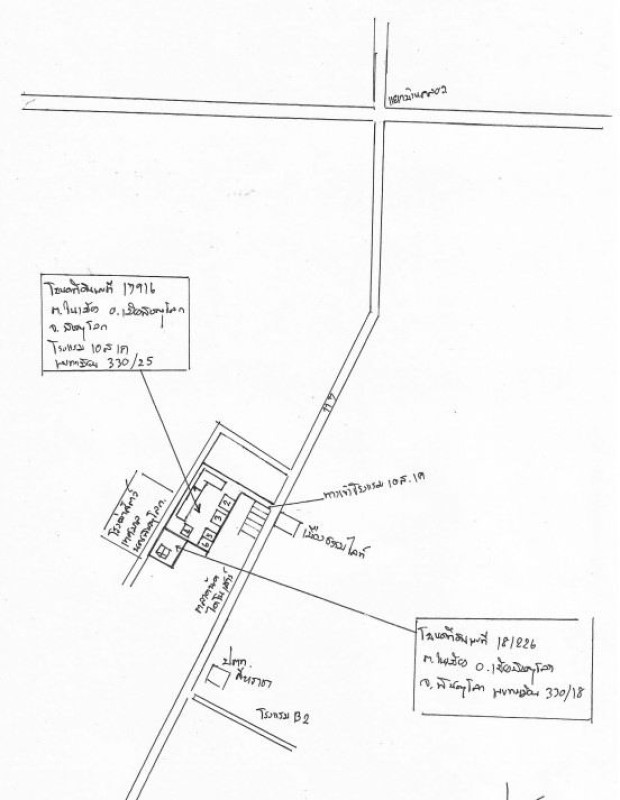 แยกบ้านคลอง
โฉนดที่ดินเลขที่ 17916
ต.ในเมือง อ.เมืองพิษณุโลก
จ.พิษณุโลก
โรงแรม
330/25
ทางเข้าโรงแรม
2
3
โรงฆ่าสัตว์
เทศบาล
นครพิษณุโลก
เมืองทองไลท์
ตลาดนัด
ไดโนเสาร์
โฉนดที่ดินเลขที่ 181226
ต.ในเมือง อ.เมืองพิษณุโลก
จ.พิษณุโลก 330/18
ปตท.
สีหราชา
โรงแรม B2